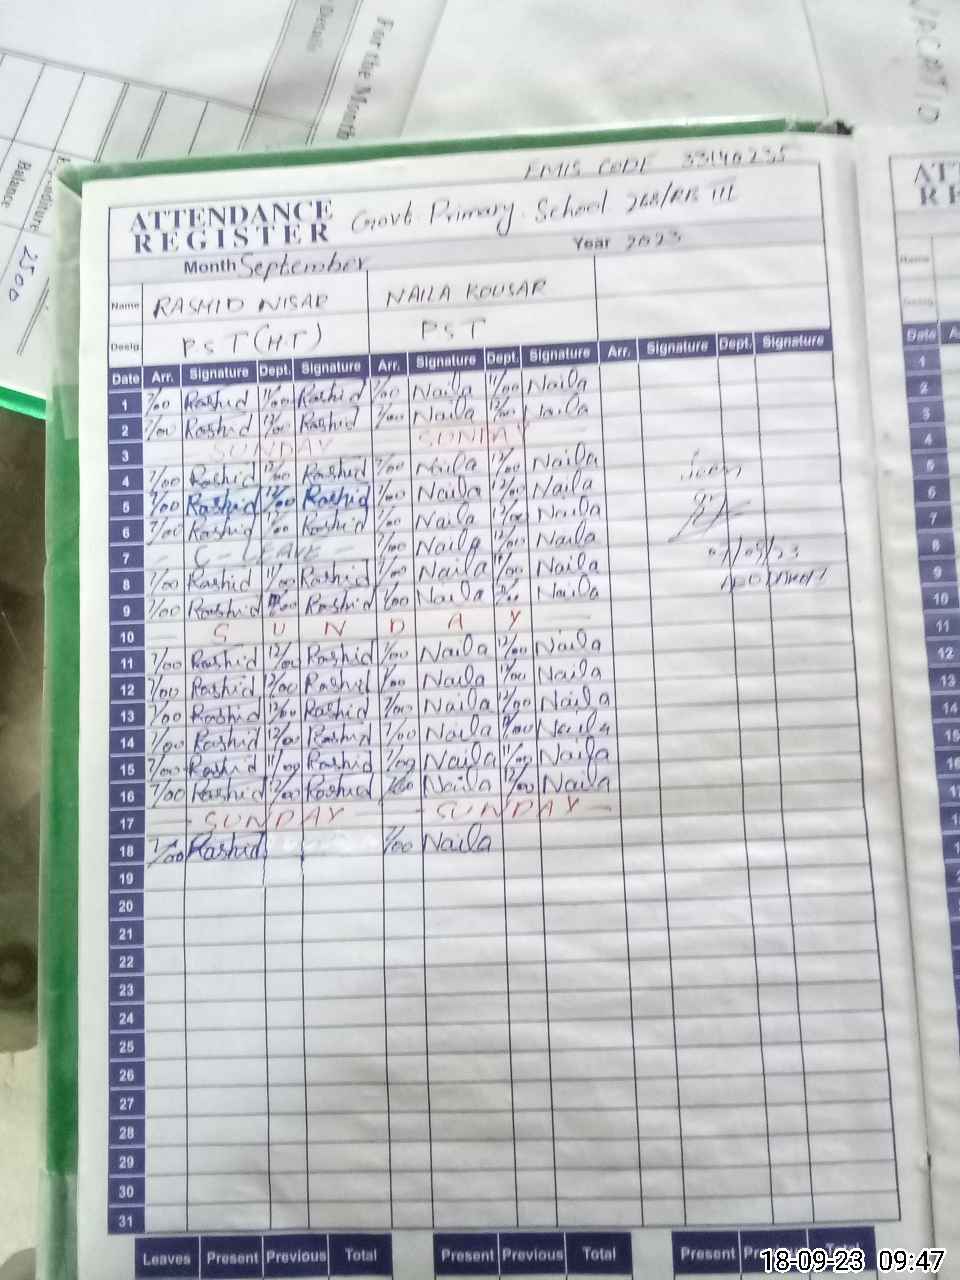 For the Month
Details
Balance
2500
EMIS CODE 33140235
ATTENDANCE
REGISTER
Govt Primary School 268/RB III
Month September Year 2023
Name RASHID NISAR NAILA KOUSAR
Desig. PST(H.T) PST
Date Arr. Signature Dept. Signature Arr. Signature Dept. Signature Arr. Signature Dept. Signature
1 7/00 Rashid 11/00 Rashid 7/00 Naila 11/00 Naila
2 7/00 Rashid 12/00 Rashid 7/00 Naila 12/00 Naila
3 SUNDAY SUNDAY
4 7/00 Rashid 12/00 Rashid 7/00 Naila 12/00 Naila
5 7/00 Rashid 12/00 Rashid 7/00 Naila 12/00 Naila
6 7/00 Rashid 12/00 Rashid 7/00 Naila 12/00 Naila
7 - C - LEAVE - 7/00 Naila 12/00 Naila
8 7/00 Rashid 11/00 Rashid 7/00 Naila 11/00 Naila
9 7/00 Rashid Rashid 7/00 Naila Naila
10 SUNDAY
11 7/00 Rashid 12/00 Rashid 7/00 Naila 12/00 Naila
12 7/00 Rashid 12/00 Rashid 7/00 Naila 12/00 Naila
13 7/00 Rashid 12/00 Rashid 7/00 Naila 12/00 Naila
14 7/00 Rashid 12/00 Rashid 7/00 Naila Naila
15 7/00 Rashid 11/00 Rashid 7/00 Naila 11/00 Naila
16 7/00 Rashid 12/00 Rashid 7/00 Naila 12/00 Naila
17 - SUNDAY - - SUNDAY -
18 7/00 Rashid 7/00 Naila
19
20
21
22
23
24
25
26
27
28
29
30
31
Leaves Present Previous Total Present Previous Total Present Total
Date
1
2
3
4
5
6
7
8
9
10
11
12
13
14
15
16
18-09-23 09:47